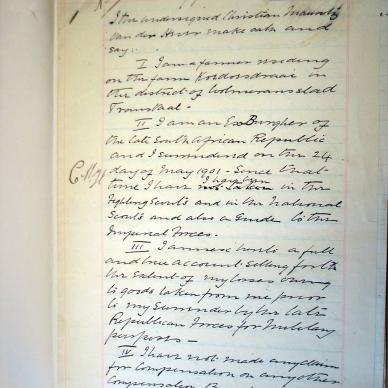 I the undersigned Christian
van der make oath and
say:-
I I am a farmer residing
on the farm in
the district of Wolmaransstad
Transvaal -
II I am an Ex Burgher of
the late South African Republic
and I surrendered on the 24
day of May 1901 - Since that
I have been
time I have not taken in the
Fighting Scouts and in the National
Scouts and also a Guide to the
Imperial Forces.
III I annex hereto a full
and true account setting forth
the extent of my losses owing
to goods taken from me prior
to my surrender by the late
Republican Forces for Military
purposes -
IV I have not made any claim
for compensation on any other
Compensation